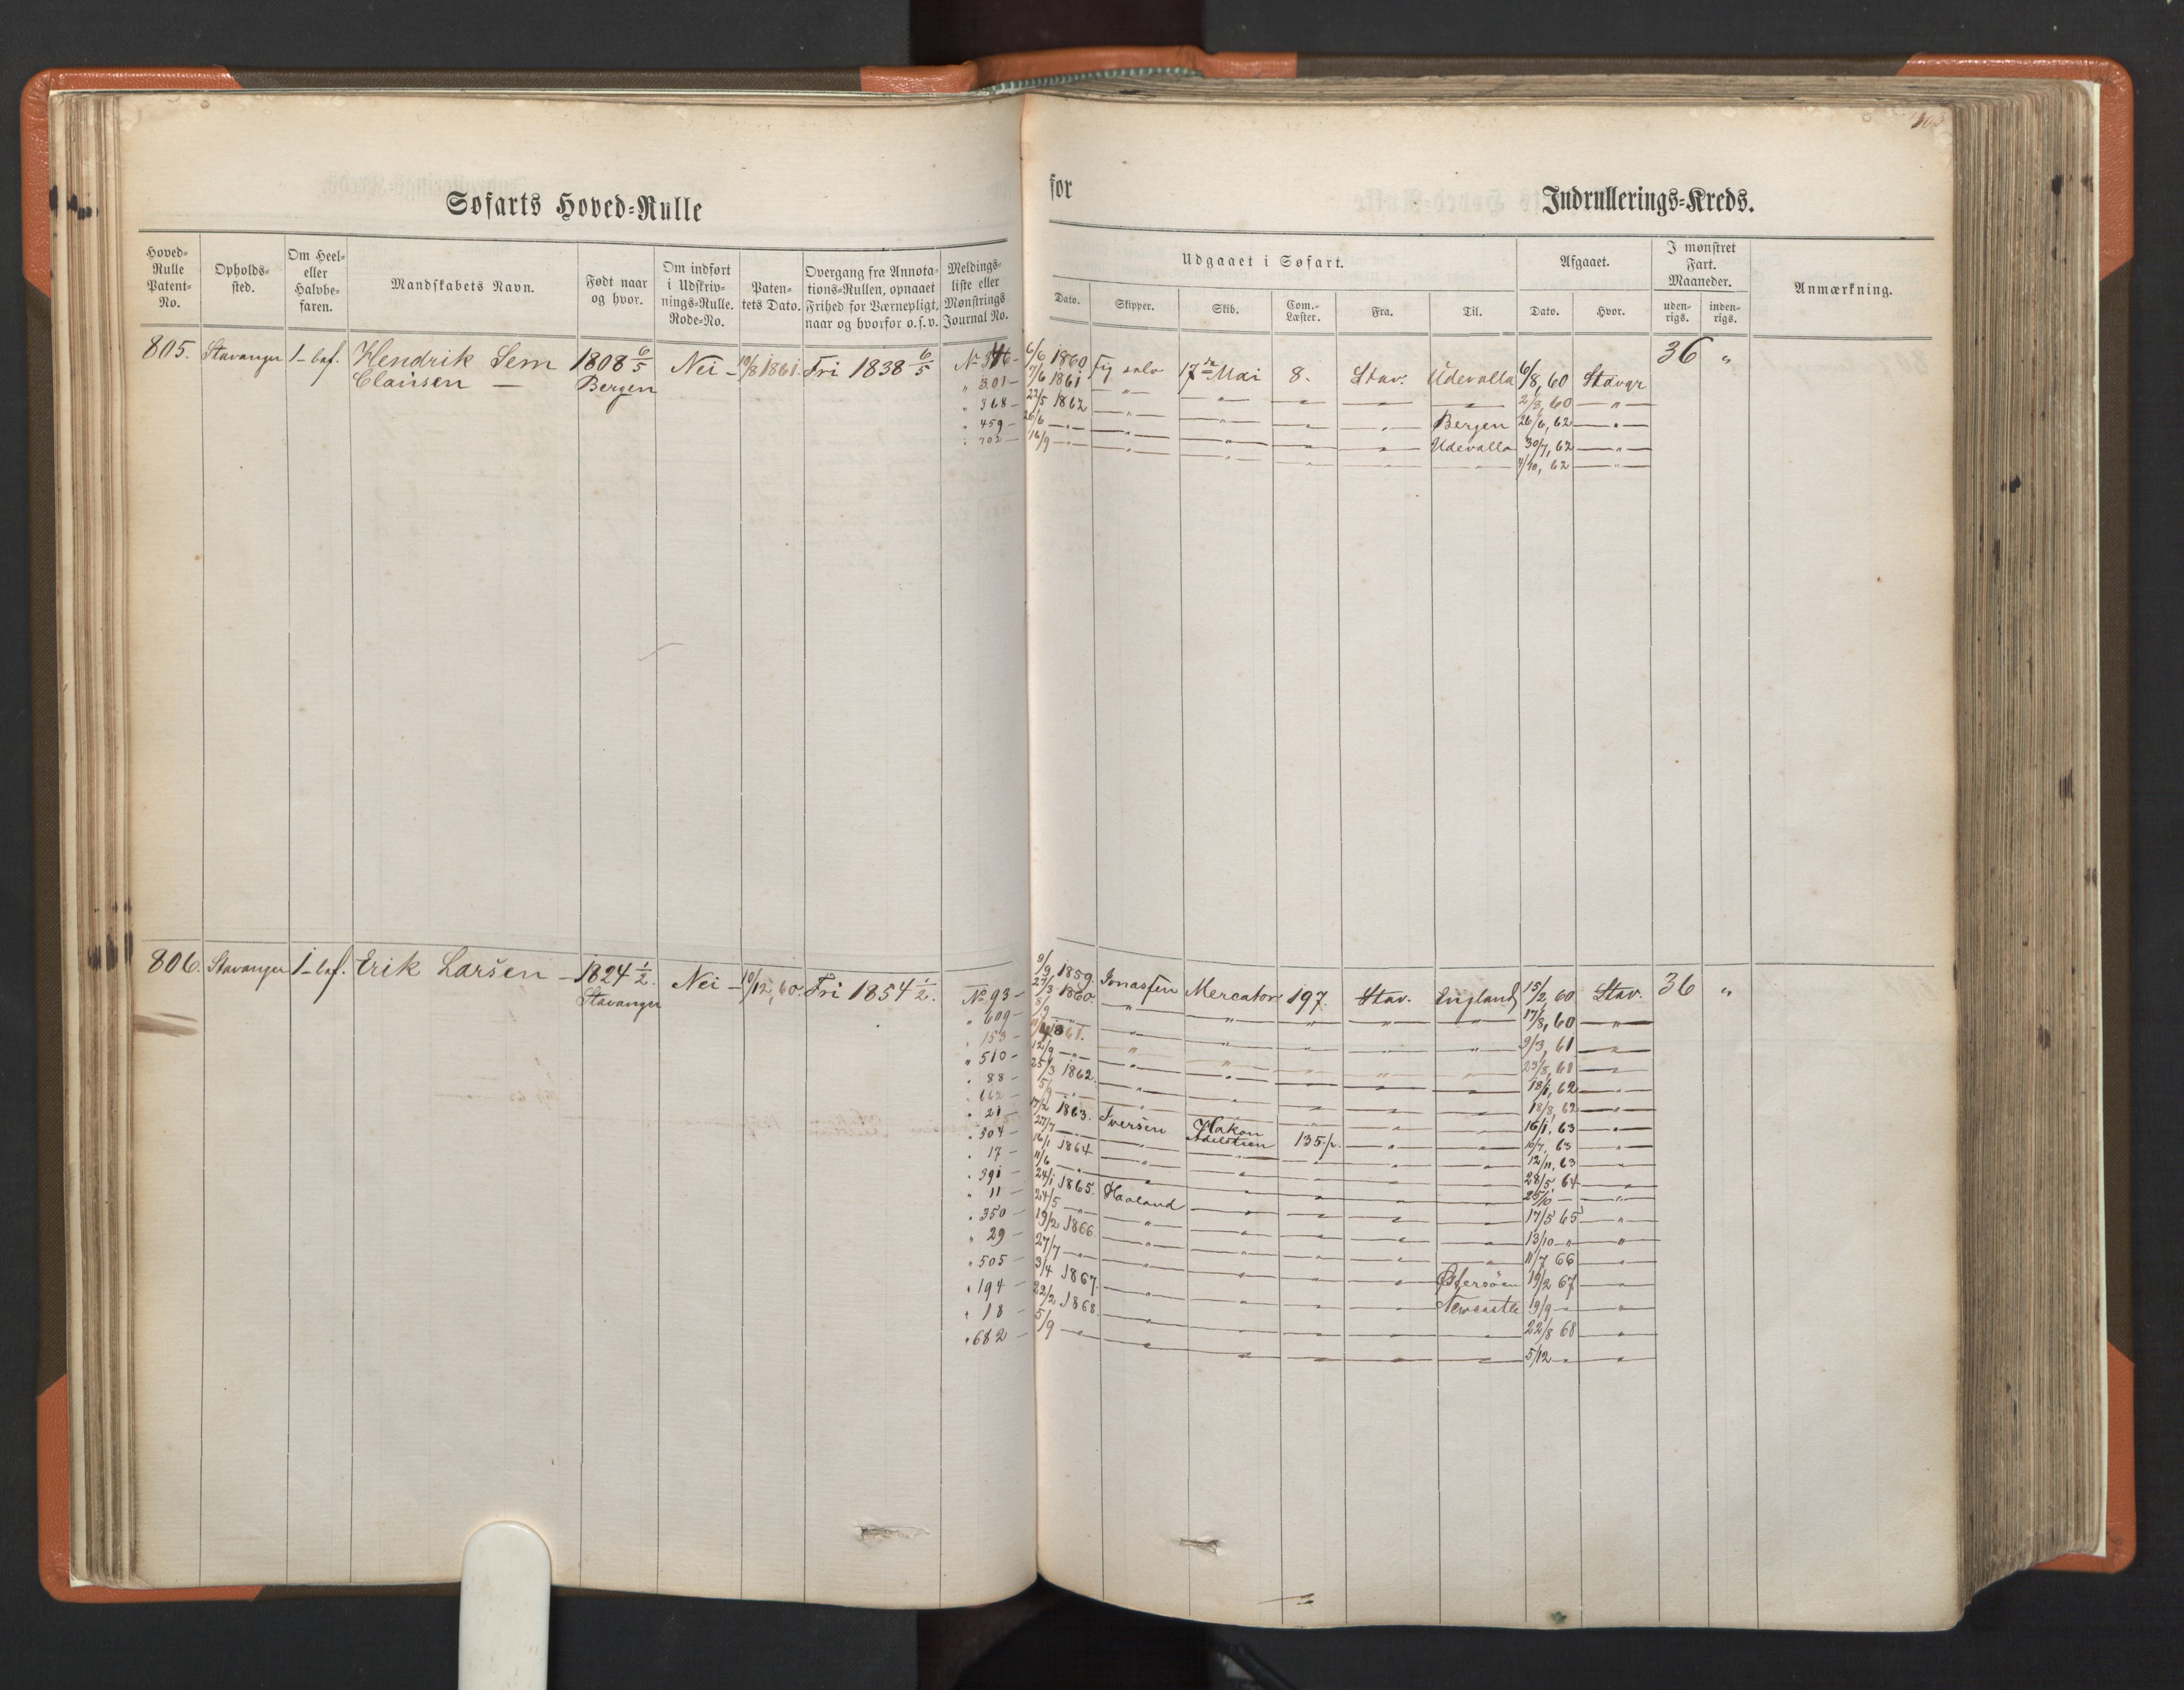 103
Søfarts Hoved-Rulle
for Indrullerings-Kreds.
Hoved-Rulle Patent-No.
Opholds-sted.
Om Heel- eller Halvbe-faren.
Mandskabets Navn.
Født naar og hvor.
Om indført i Udskriv-nings-Rulle. Rode-No.
Paten-tets Dato.
Overgang fra Annota-tions-Rullen, opnaaet Frihed for Værnepligt, naar og hvorfor o.s.v.
Meldings-liste eller Mønstrings Journal No.
Udgaaet i Søfart.
Dato. Skipper. Skib. Com.-Læster. Fra. Til.
Afgaaet.
Dato. Hvor.
I mønstret Fart. Maaneder.
uden-rigs. inden-rigs.
Anmærkning.
805. Stavanger 1-baf. Hendrik Sem 1808 6/5 Nei - 10/8 1861. Fri 1838 6/5
Clausen — Bergen
6/6 1860 Fig selv 17de Mai 8. Stav. Udevalla 6/8, 60 Stavgr 36 "
" 301 - 7/6 1861 " " " " " 2/8, 60 "
" 368 - 22/5 1862 " " " " Bergen 26/6, 62 "
" 459 - 26/6 " " " " " Udevalla 30/7, 62 "
" 702 - 16/9 " " " " " " 4/10, 62 "
806. Stavanger 1-baf. Erik Larsen - 1824 1/2. Nei - 10/12, 60. Fri 1854 1/2.
Stavanger
No 93 - 9/9 1859 Jonassen Mercator 197. Stav. England 15/2, 60 Stav. 36 "
" 609 - 27/3 1860 " " " " " 17/8, 60 "
" 153 - 8/9 " " " " " " 9/3, 61 "
" 510 - 1861. " " " " " 23/8, 61 "
" 88 - 12/9 " " " " " " 18/1, 62 "
" 662 - 25/3 1862. " " " " " 18/8, 62 "
" 21 - 5/9 " " " " " " 16/1, 63 "
" 304 - 17/2 1863. Iversen Hakon Adelstien 135 1/2. " " 10/7, 63 "
" 17 - 27/7 " " " " " " 12/11, 63 "
" 391 - 16/1 1864 " " " " " 28/5, 64 "
" 11 - 11/6 " " " " " " 25/10 "
" 350 - 24/1 1865. Haaland " " " " 17/5 65 "
" 29 - 24/5 " " " " " " 13/10 " "
" 505 - 19/2 1866. " " " " " 11/7 66 "
" 194 - 27/7 " " " " " Østersøen 19/2 67 "
" 18 - 3/4 1867. " " " " Newcastle 19/9 - "
" 682 - 22/2 1868. " " " " " 22/8 68 "
5/9 " " " " " " 5/12 " "